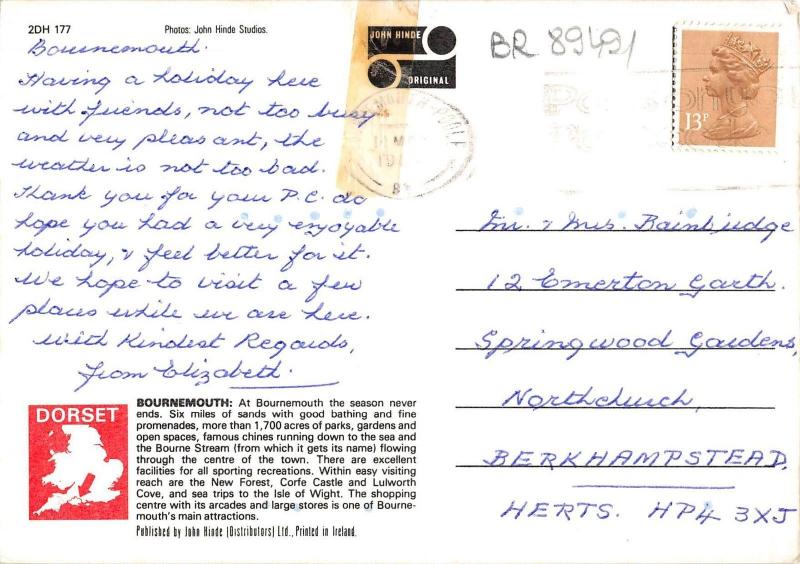 2DH 177
Photos: John Hinde Studios.
JOHN HINDE
ORIGINAL
BR 89491
13P
Bournemouth.
Having a holiday here
with friends, not too busy
and very pleasant, the
weather is not too bad.
Thank you for your P.C. do
hope you had a very enjoyable
holiday, & feel better for it.
We hope to visit a few
places while we are here.
With Kindest Regards,
from Elizabeth.
Mr. & Mrs. Bainbridge
12 Emerton Garth.
Springwood Gardens,
Northchurch,
BERKHAMPSTEAD,
HERTS. HP4 3XJ
DORSET
BOURNEMOUTH: At Bournemouth the season never
ends. Six miles of sands with good bathing and fine
promenades, more than 1,700 acres of parks, gardens and
open spaces, famous chines running down to the sea and
the Bourne Stream (from which it gets its name) flowing
through the centre of the town. There are excellent
facilities for all sporting recreations. Within easy visiting
reach are the New Forest, Corfe Castle and Lulworth
Cove, and sea trips to the Isle of Wight. The shopping
centre with its arcades and large stores is one of Bourne-
mouth's main attractions.
Published by John Hinde (Distributors) Ltd., Printed in Ireland.